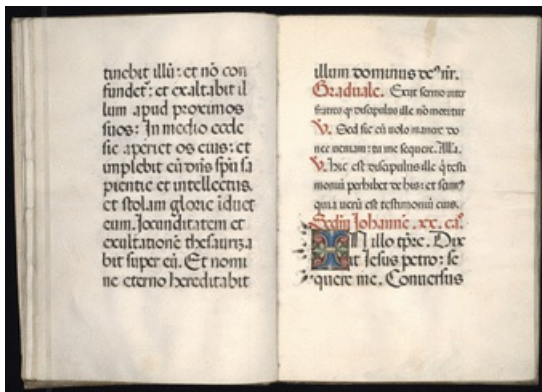 tinebit illū: et nō con
fundet᷑: et exaltabit il
lum apud proximos
suos: In medio eccle
sie aperiet os eius: et
implebit eū dn̄s spū sa
pientie et intellectus.
et stolam glorie īduet
eum. Jocunditatem et
exultationē thesauriza
bit super eū. Et nomi
ne eterno hereditabit
illum dominus deꝰ nr̄.
Graduale. Exiit sermo inter
fratres ꝙ discipulus ille nō moritur
V. Sed sic eū volo manere do
nec veniam: tu me sequere. Alla.
V. hic est discipulus ille q̇ testi
moniū perhibet de his: et scimꝰ
quia uerū est testimoniū eius.
Sedm̄ Johannē. xx. ca.
IN illo tp̄re. Dix
it Jesus petro: se
quere me. Conuersus